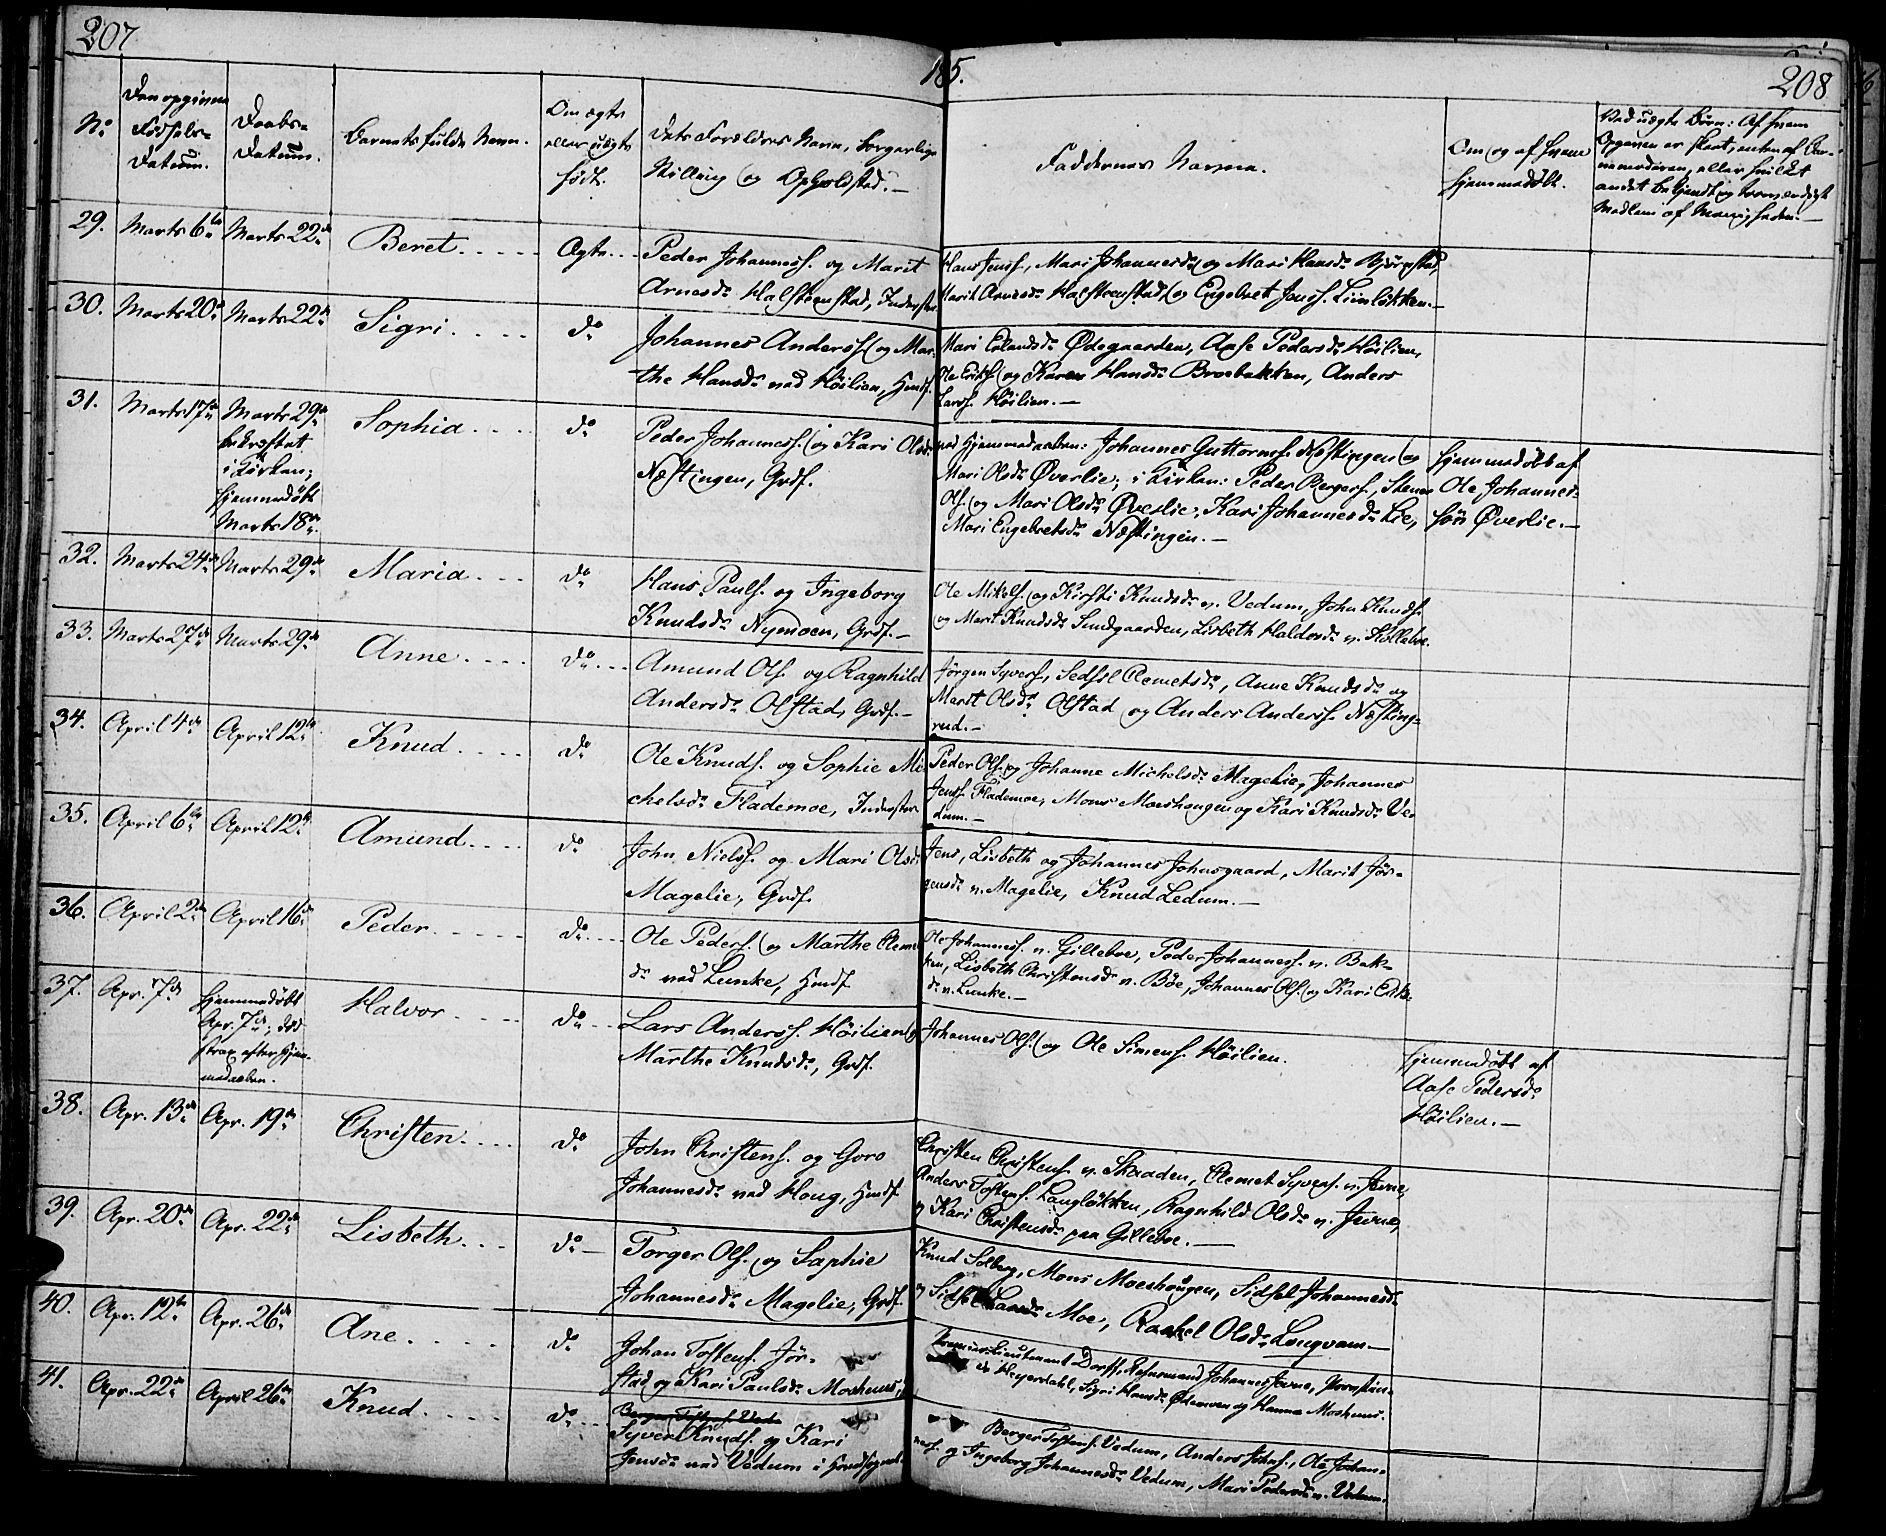 207
185.
208
No
Den opgivne Fødsels-Datum.
Daabs-Datum.
Barnets fulde Navn.
Om ægte eller uægte født.
Dets Forældres Navn, borgerlige Stilling og Opholdsted.
Faddernes Navne.
Om og af hvem hjemmedøbt.
Ved uægte Børn: Af hvem Opgiven er skeet, enten af Barnemoderen, eller hvilket andet bekjendt og troværdigt Medlem af Menigheden.
29. Marts 6te Marts 22de Beret Ægte Peder Johanness. og Marit
Arnesd. Halsteenstad, Inderster
Hans Jenss., Mari Johannesd. og Mari Hansd. Bjørnstad,
Marit Arnesd. Halsteenstad og Engebret Jenss. Liimløkken.
30. Marts 20de Marts 22de Sigri do Johannes Anderss. og Mar-
the Hansd. ved Høilien, Huusf.
Mari Erlandsd. Ødegaarden, Aase Pedersd. Høilien,
Ole Eriks. og Karen Hansd. Broebakken, Anders
Larss. Høilien.
31. Marts 17de Marts 29de
bekræftet
i Kirken;
hjemmedøbt
Marts 18de
Sophia do Peder Johanness. og Kari Olsd.
Næstingen, Grdf.
ved Hjemmedaaben: Johannes Guttorms. Næstingen og
Mari Olsd. Øverlie; i Kirken: Peder Bergers., Stener
Ols. og Mari Olsd. Øverlie, Kari Johannesd. Lie,
Mari Engebretsd. Næstingen.
Hjemmedøbt af
Ole Johannes-
søn Øverlie.
32. Marts 24de Marts 29de Maria do Hans Pauls. og Ingeborg
Knudsd. Nymoen, Grdf.
Ole Mikels. og Kirsti Knudsd. v. Vedum, John Knuds.
og Marit Knudsd. Sundgaarden, Lisbeth Haldosd. v. Kolleboe.
33. Marts 27de Marts 29de Anne do Amund Ols. og Ragnhild
Andersd. Olstad, Grdf.
Jørgen Syvers., Sidsel Clemetsd., Anne Knudsd. og
Marit Olsd. Olstad og Anders Anderss. Næsting-
rud.
34. April 4de April 12te Knud do Ole Knuds. og Sophie Mi-
chelsd. Flademoe, Inderster
Peder Ols. og Johanne Michelsd. Magelie, Johannes
Jenss. Flademoe, Mons Moeshaugen og Kari Knudsd. Ve-
dum.
35. April 6te April 12te Amund do John Niels. og Mari Olsd.
Magelie, Grdf.
Jens, Lisbeth og Johannes Johnsgaard, Marit Jør-
gensd. v. Magelie, Knud Ledum.
36. April 2den April 16de Peder do Ole Peders. og Marthe Clem
d. ved Lunke, Huusf.
Ole Johanness. v. Gilleboe, Peder Johanness. v. Bak-
ken, Lisbeth Christensd. v. Bøe, Johannes Ols. og Kari Eriks-
d. v. Lunke.
37. Apr. 7de Hjemmedøbt
Apr. 7de; død
strax efter Hjem-
medaaben.
Halvor do Lars Anderss. Høilien og
Marthe Knudsd., Grdf.
Johannes Ols. og Ole Simens. Høilien.
Hjemmedøbt af
Aase Pedersd.
Høilien.
38. Apr. 13de Apr. 19de Christen do John Christens. og Goro
Johannesd. ved Haug, Huusf.
Christen Christens. v. Skaaden, Clemet Syvers. v. Jevne,
Anders Tostens. Langløkken, Ragnhild Olsd. v. Jevne,
og Kari Christensd. paa Gilleboe.
39. Apr. 20de Apr. 22de Lisbeth do Torger Ols. og Sophie
Johannesd. Magelie, Grdf.
Knud Solberg, Mons Moeshaugen, Sidsel Johannesd.
og Sidsel Larsd. Moe, Rachel Olsd. Longvam.
40. Apr. 12te Apr. 26de Ane do Johan Tostens. Jør-
stad og Kari Paulsd. Moshuus,
Premier-Lieutenant Dorff, Johannes Jevne,
Heyerdahl, Sigri Hansd. Ødemoen og Hanna Moshuus.
41. Apr. 22de April 26de Knud do
Syver Knuds. og Kari
Jensd. ved Vedum i
Berger Tostens. Vedum, Anders Johns., Ole Johan-
ness. og Ingeborg Johannesd. Vedum, Mari Pedersd. v. Vedum.